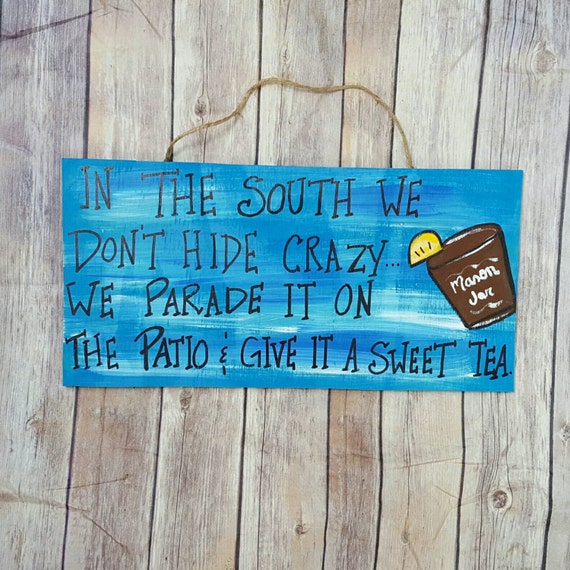 IN THE SOUTH WE
DON'T HIDE CRAZY...
WE PARADE IT ON
THE PATIO & GIVE IT A SWEET TEA.
Manon
Jar